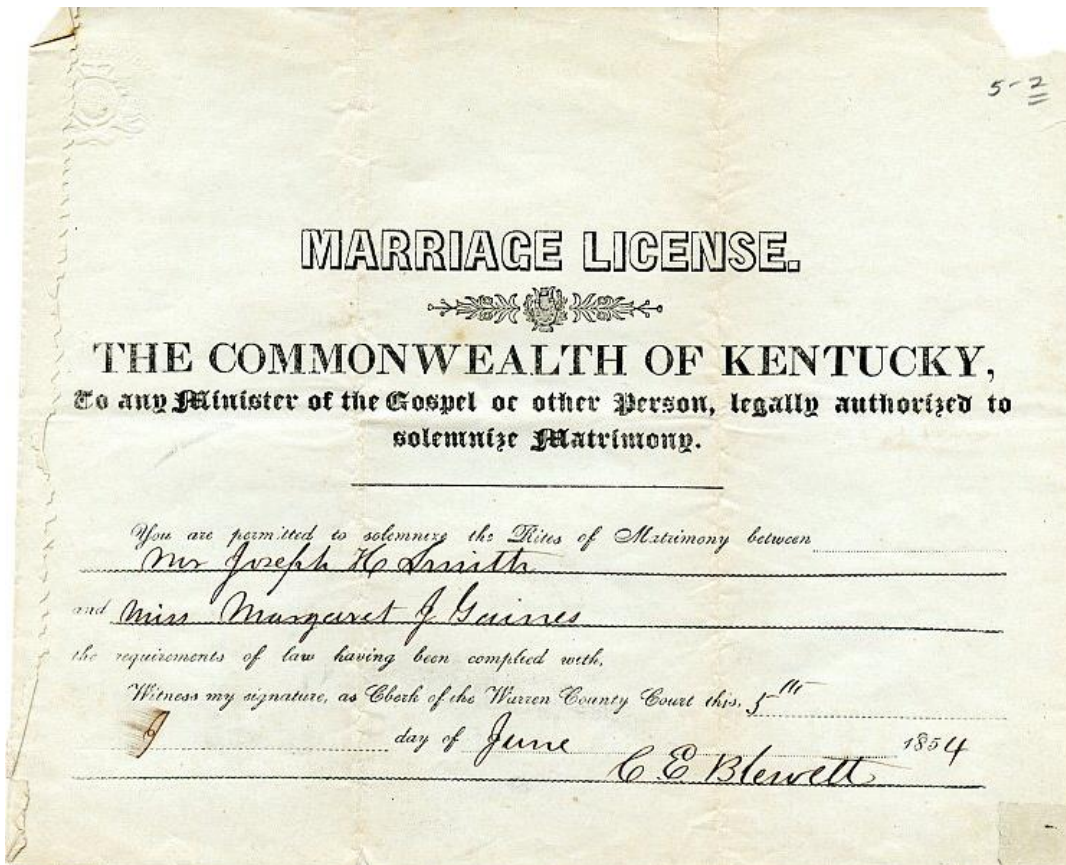 5-2
MARRIAGE LICENSE.
THE COMMONWEALTH OF KENTUCKY,
To any Minister of the Gospel or other Person, legally authorized to
solemnize Matrimony.
You are permitted to solemnize the Rites of Matrimony between
Mr Joseph H Smith
and Miss Margaret J Gaines
the requirements of law having been complied with,
Witness my signature, as Clerk of the Warren County Court this, 5th
day of June 1854
C E Blewett